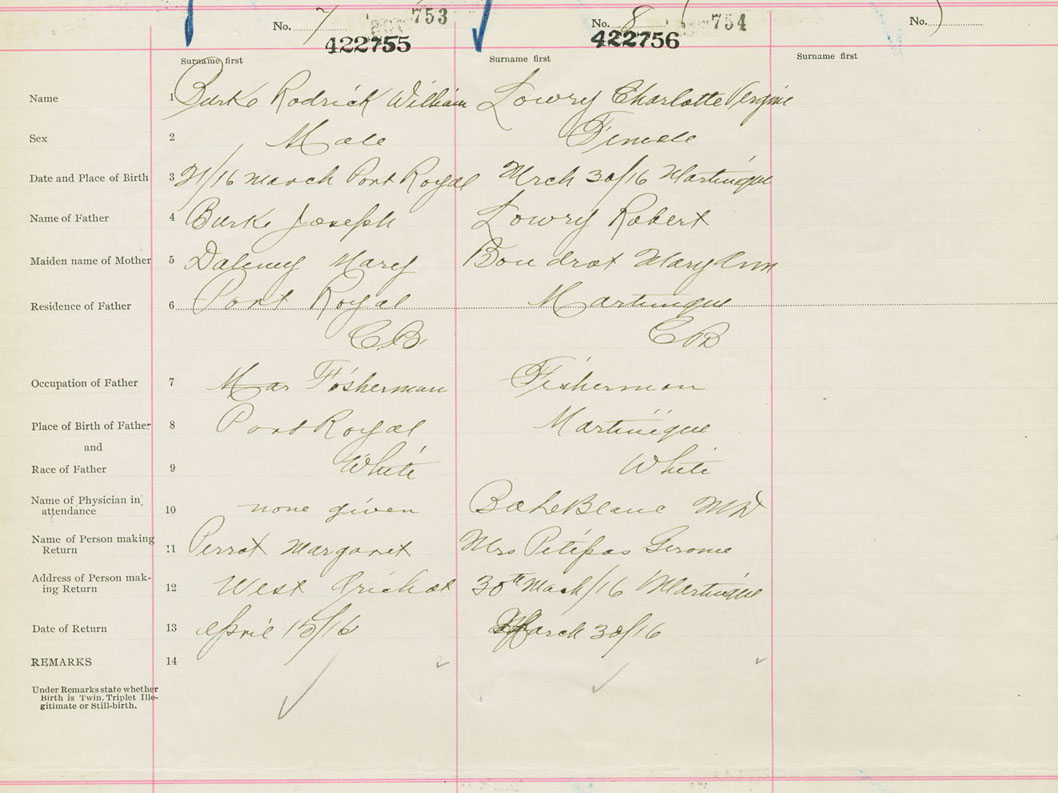 No. 7 753 No. 8 754 No.
422755 422756
Surname first Surname first Surname first
Name 1 Burke Rodrick William Lowry Charlotte
Sex 2 Male Female
Date and Place of Birth 3 21/16 march Port Royal Mrch 30/16 Martinique
Name of Father 4 Burke Joseph Lowry Robert
Maiden name of Mother 5 Mary Boudrot Mary Ann
Residence of Father 6 Port Royal Martinique
C.B C B
Occupation of Father 7 Fisherman Fisherman
Place of Birth of Father 8 Port Royal Martinique
and
Race of Father 9 White White
Name of Physician in
attendance 10 none given MD
Name of Person making
Return 11 Perrot Margaret Mrs Petipas Gerome
Address of Person mak-
ing Return 12 West Arichat 30th March/16 Martinique
Date of Return 13 April 15/16 March 30/16
REMARKS 14
Under Remarks state whether
Birth is Twin, Triplet Ille-
gitimate or Still-birth.